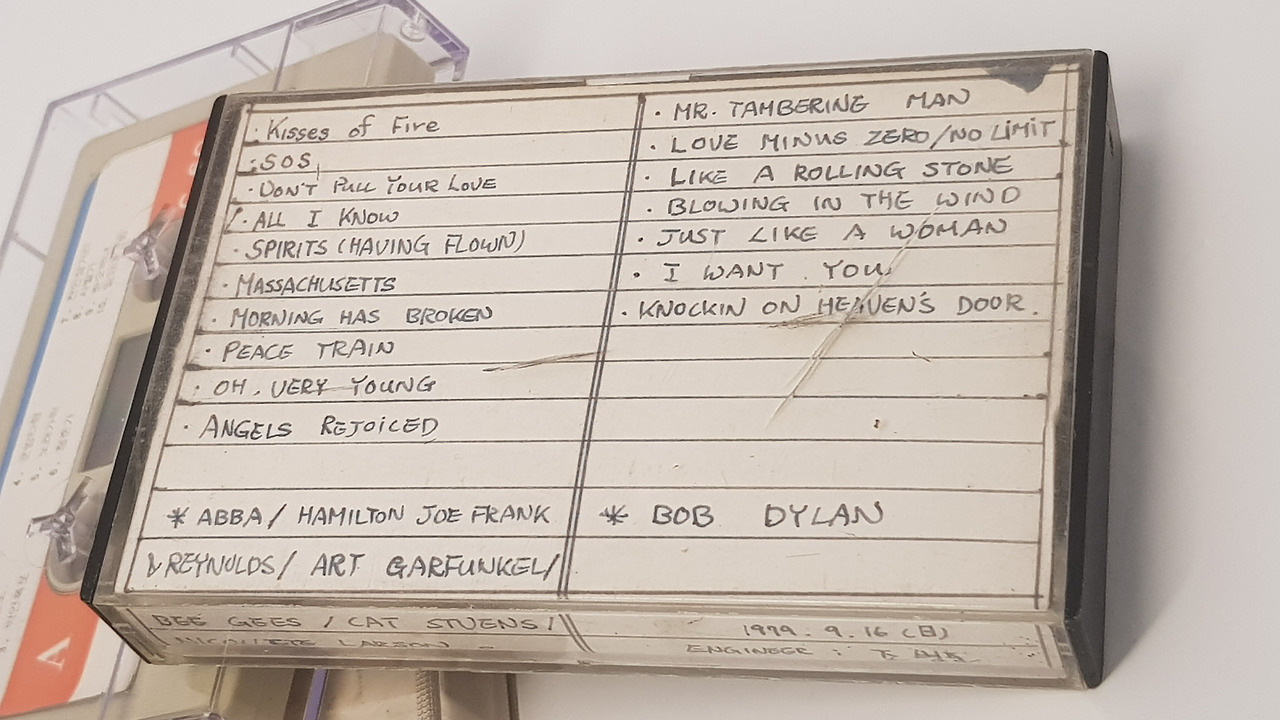 · Kisses of Fire
· SOS
· DON'T PULL YOUR LOVE
· ALL I KNOW
· SPIRITS (HAVING FLOWN)
· MASSACHUSETTS
· MORNING HAS BROKEN
· PEACE TRAIN
· OH, VERY YOUNG
· ANGELS REJOICED
* ABBA / HAMILTON JOE FRANK
& REYNOLDS / ART GARFUNKEL /
BEE GEES / CAT STUENS /
LARSON
· MR. TAMBERING MAN
· LOVE MINUS ZERO/NO LIMIT
· LIKE A ROLLING STONE
· BLOWING IN THE WIND
· JUST LIKE A WOMAN
· I WANT YOU
· KNOCKIN ON HEAVEN'S DOOR.
* BOB DYLAN
1979. 9. 16 (日)
ENGINEER :
A